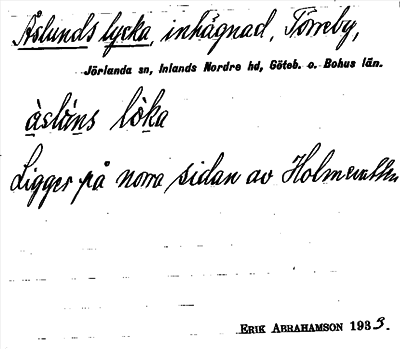 Åslunds lycka, inhägnad, Torreby,
Jörlanda sn, Inlands Nordre hd, Göteb. o. Bohus län.
àslúns lòka
Ligger på norra sidan av
ERIK ABRAHAMSON 1933.